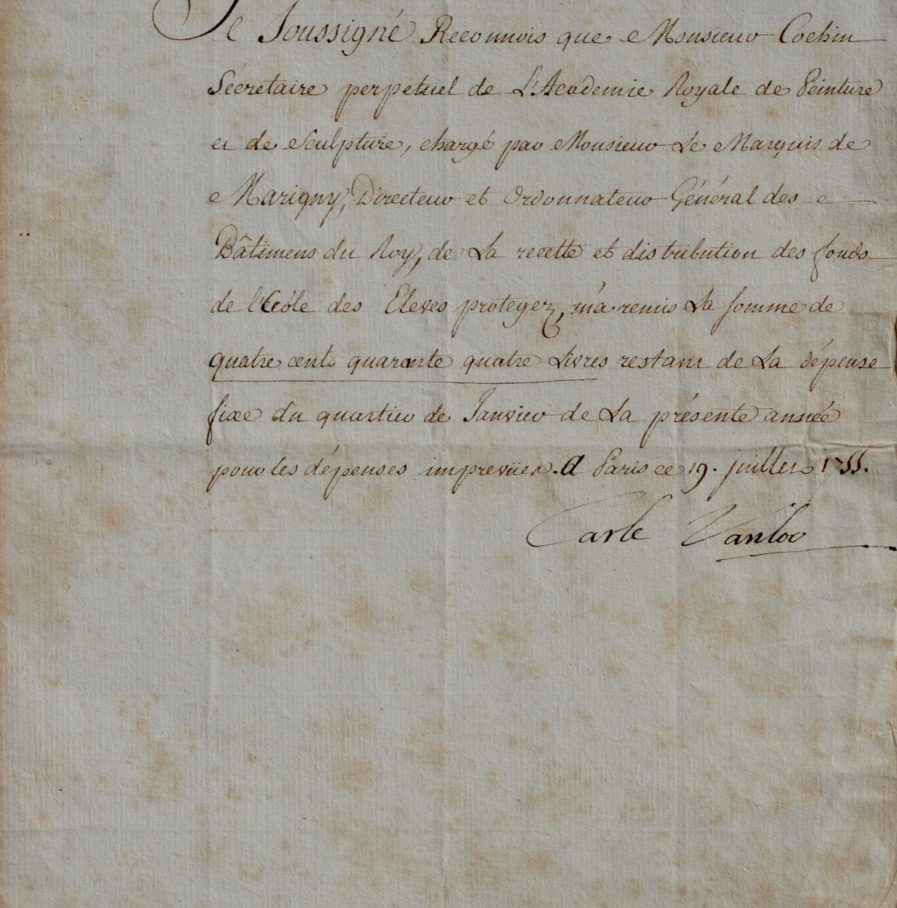 Je Soussigné Reconnois que Monsieur Cochin
Sécretaire perpetuel de L'Academie Royale de Peinture
et de Sculpture, chargé par Monsieur Le Marquis de
Marigny, Directeur et Ordonnateur Général des
Bâtimens du Roy, de La recette et distribution des fonds
de l'Ecôle des Eleves protegez, m'a remis La somme de
quatre cents quarante quatre Livres restant de La dépense
fixe du quartier de Janvier de La présente année
pour les dépenses imprevües. A Paris ce 19. juillet 1755.
Carle Vanloo